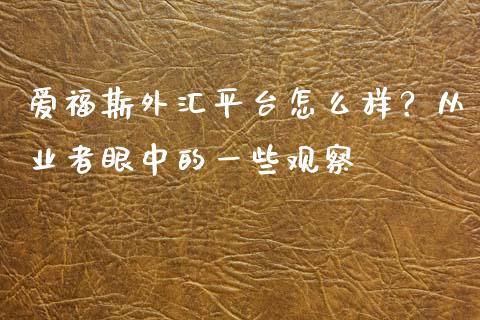 爱福斯外汇平台怎么样？从
业者眼中的一些观察